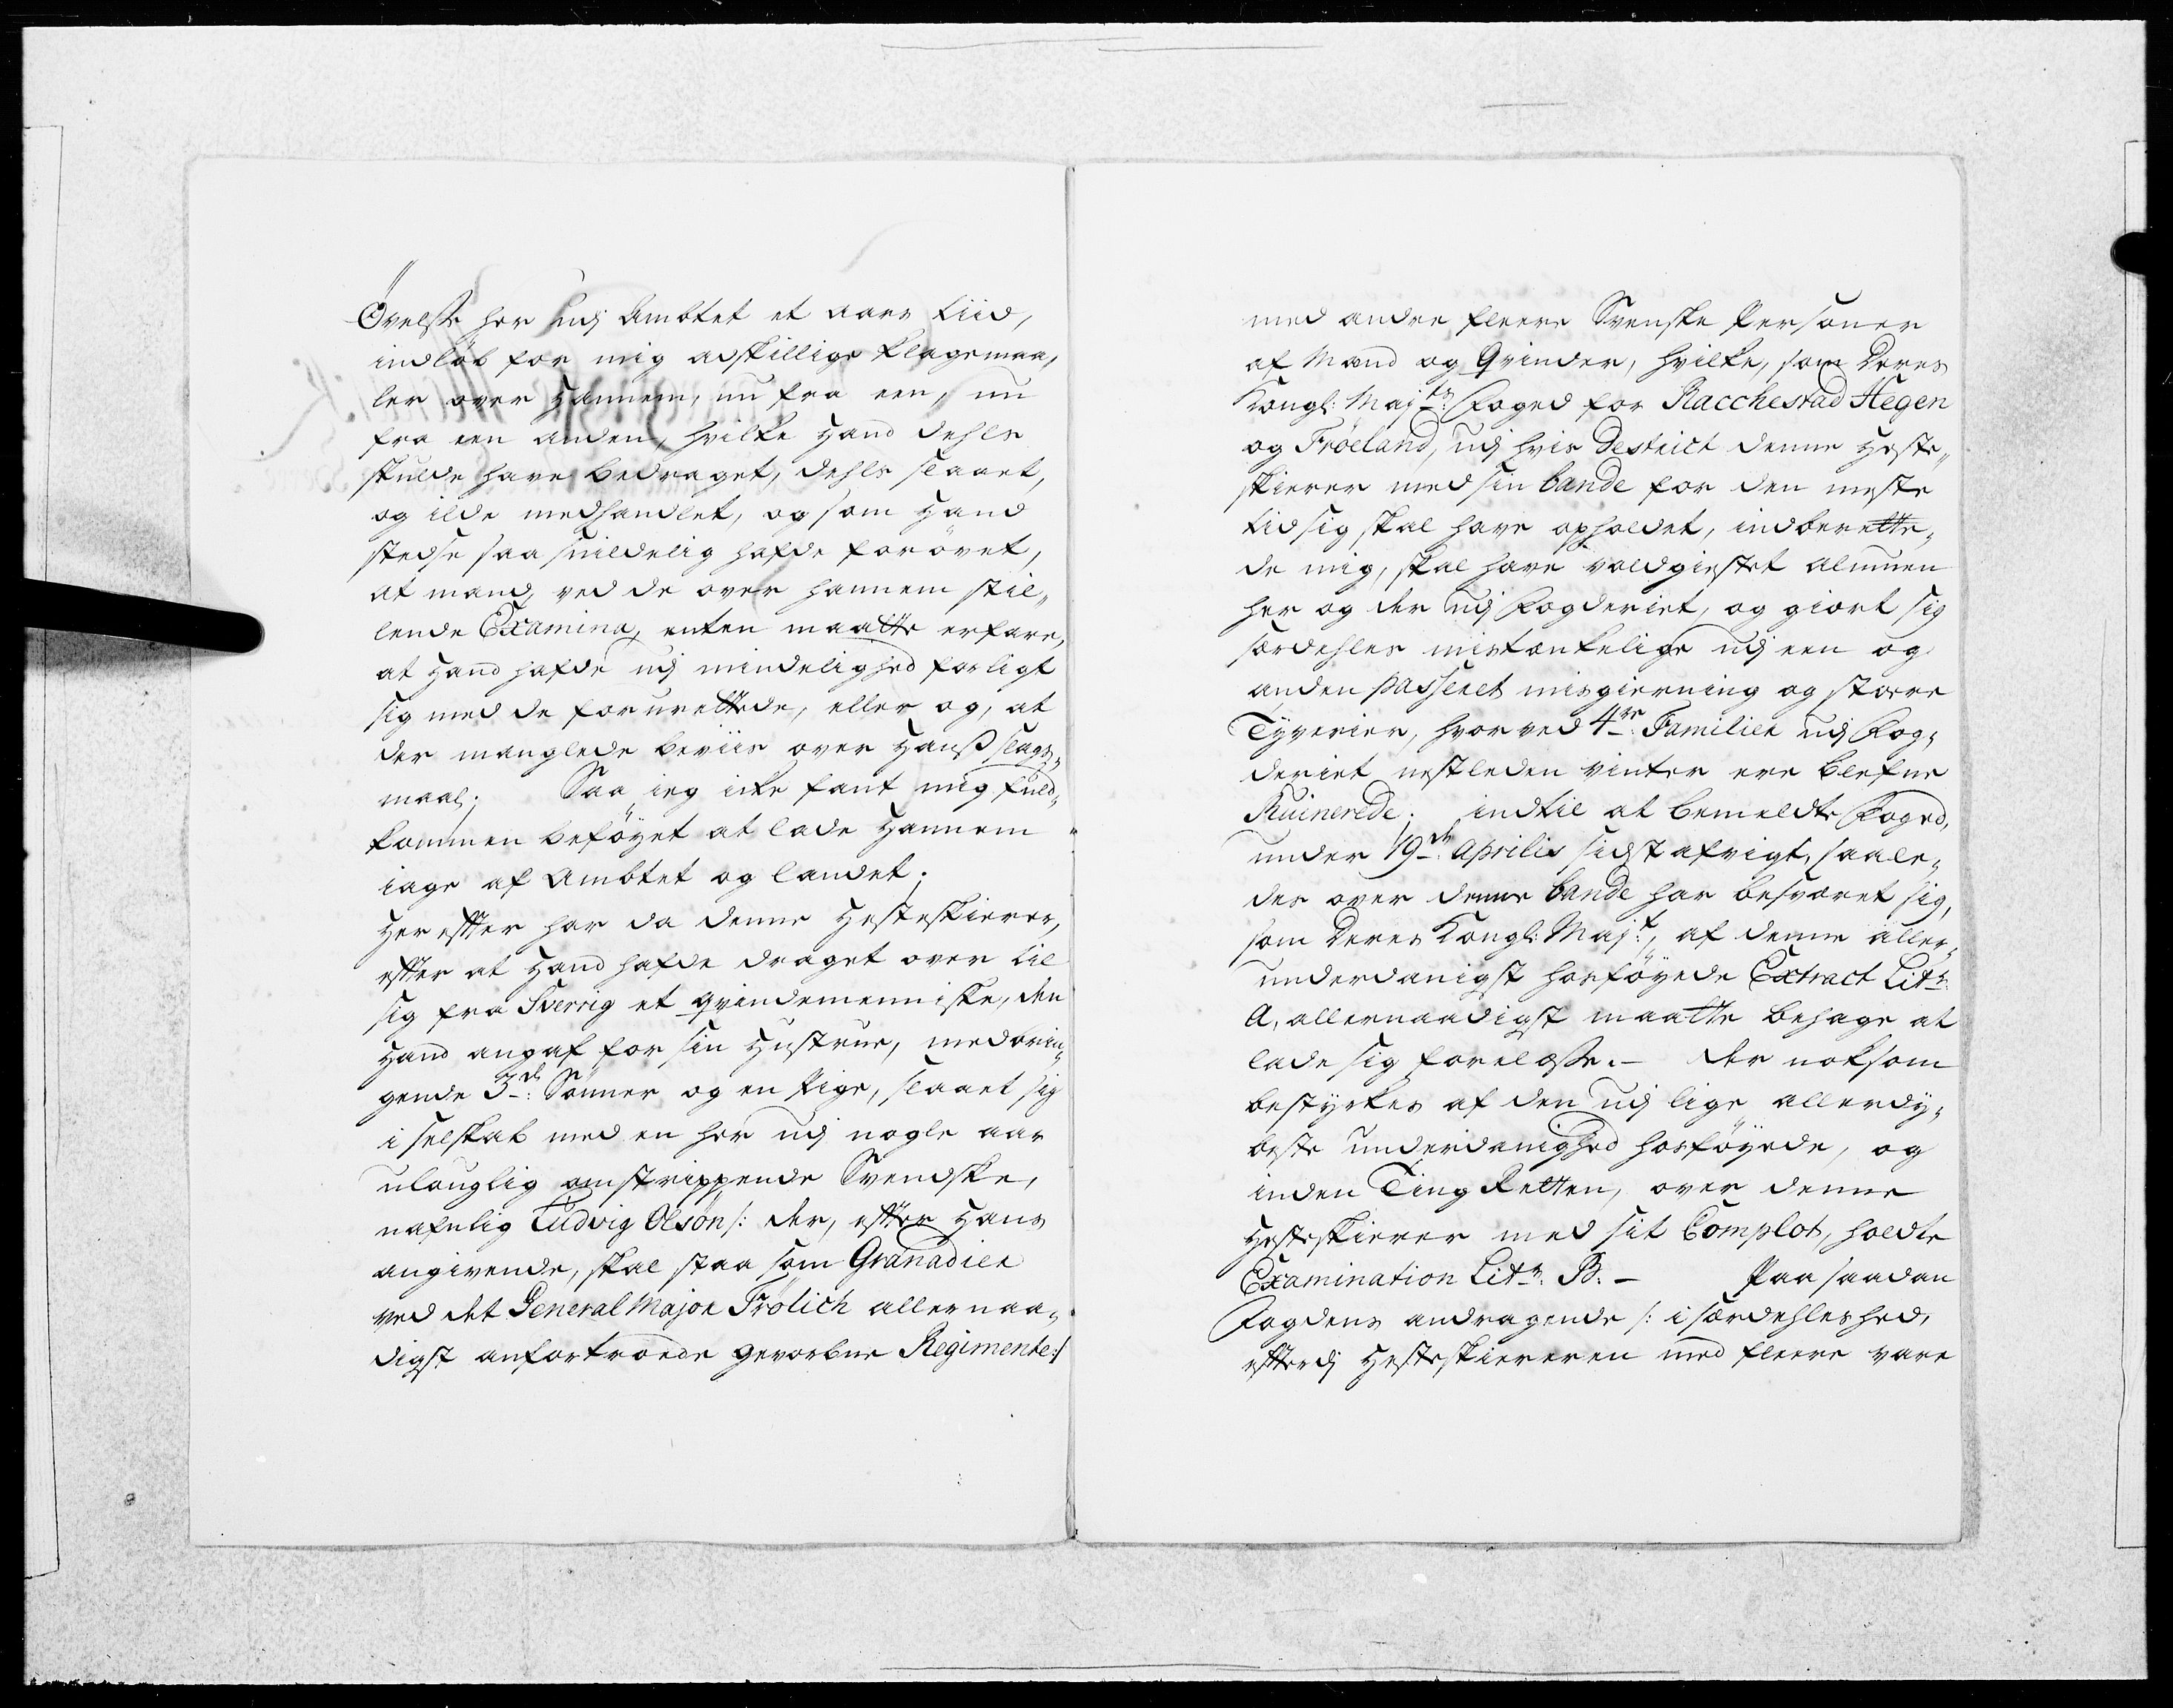 Øvelse her udj Ambtet et aars tiid,
indløb for mig adskillige klagemaa,
ler over Hannem, nu fra een, nu
fra een anden, hvilke Hand dehls
skulde have bedraget, dehls slaaet,
og ilde medhandlet, og som Hand
stedse saa snildelig hafde forövet,
at mand, ved de over hannem stil„
lende Examina, enten maatte erfare,
at Hand hafde udj mindelighed forligt
sig med de forurettede, eller og, at
der manglede beviis over Hanß slags„
maal; Saa ieg icke fant mig fuld„
kommen beföyet at lade Hannem
iage af Ambtet og landet.
Her effter har da denne Hesteskierer,
effter at Hand hafde draget over til
sig fra Sverrig et qvindemenniske, den
Hand angaf for sin Hustrue, medbrin„
gende 3de: Sönner og en Pige, slaaet sig
i selskab med en her udj nogle aar
ulouglig omstrippende Svendske,
nafnlig Ludvig Olsøn /: der, effter Hans
angivende, skal staa som Granadier
ved det General Major Frölich allernaa„
digst anfortroede gevorbne Regimente :/
med andre fleere Svenske Personer
af Mænd og Qvinder, hvilke, som Deres
Kongl: Maj:ts Foged for Racchestad Hegen
og Fröeland, udj hvis Destrict denne Heste„
skierer med sin bande for den meste
tid sig skal have opholdet, indberette„
de mig, skal have voldgiestet almuen
her og der udj Fogderiet, og giort sig
særdehles mistænkelige udj een og
anden passeret misgierning og større
Tyverier, hvorved 4re: Familier udj Fog„
deriet nestleden vinter ere blefne
Ruinerede; indtil at bemeldte Foged,
under 19de: Aprilis sidst afvigt, saale„
des over denne bande har besværet sig,
som Deres Kongl: Maj:t, af denne aller„
underdanigst hosföyede Extract Litr:
A, allernaadigst maatte behage at
lade sig forelæsse. – der noksom
bestyrkes af den udj lige allerdy„
beste underdanighed hosföyede, og
inden Ting Retten, over denne
Hesteskierer med sit Complot, holdte
Examination Litr: B. – Paa saadan
Fogdens andragende /: i særdehleshed,
efterdj Hesteskiereren med fleere vare